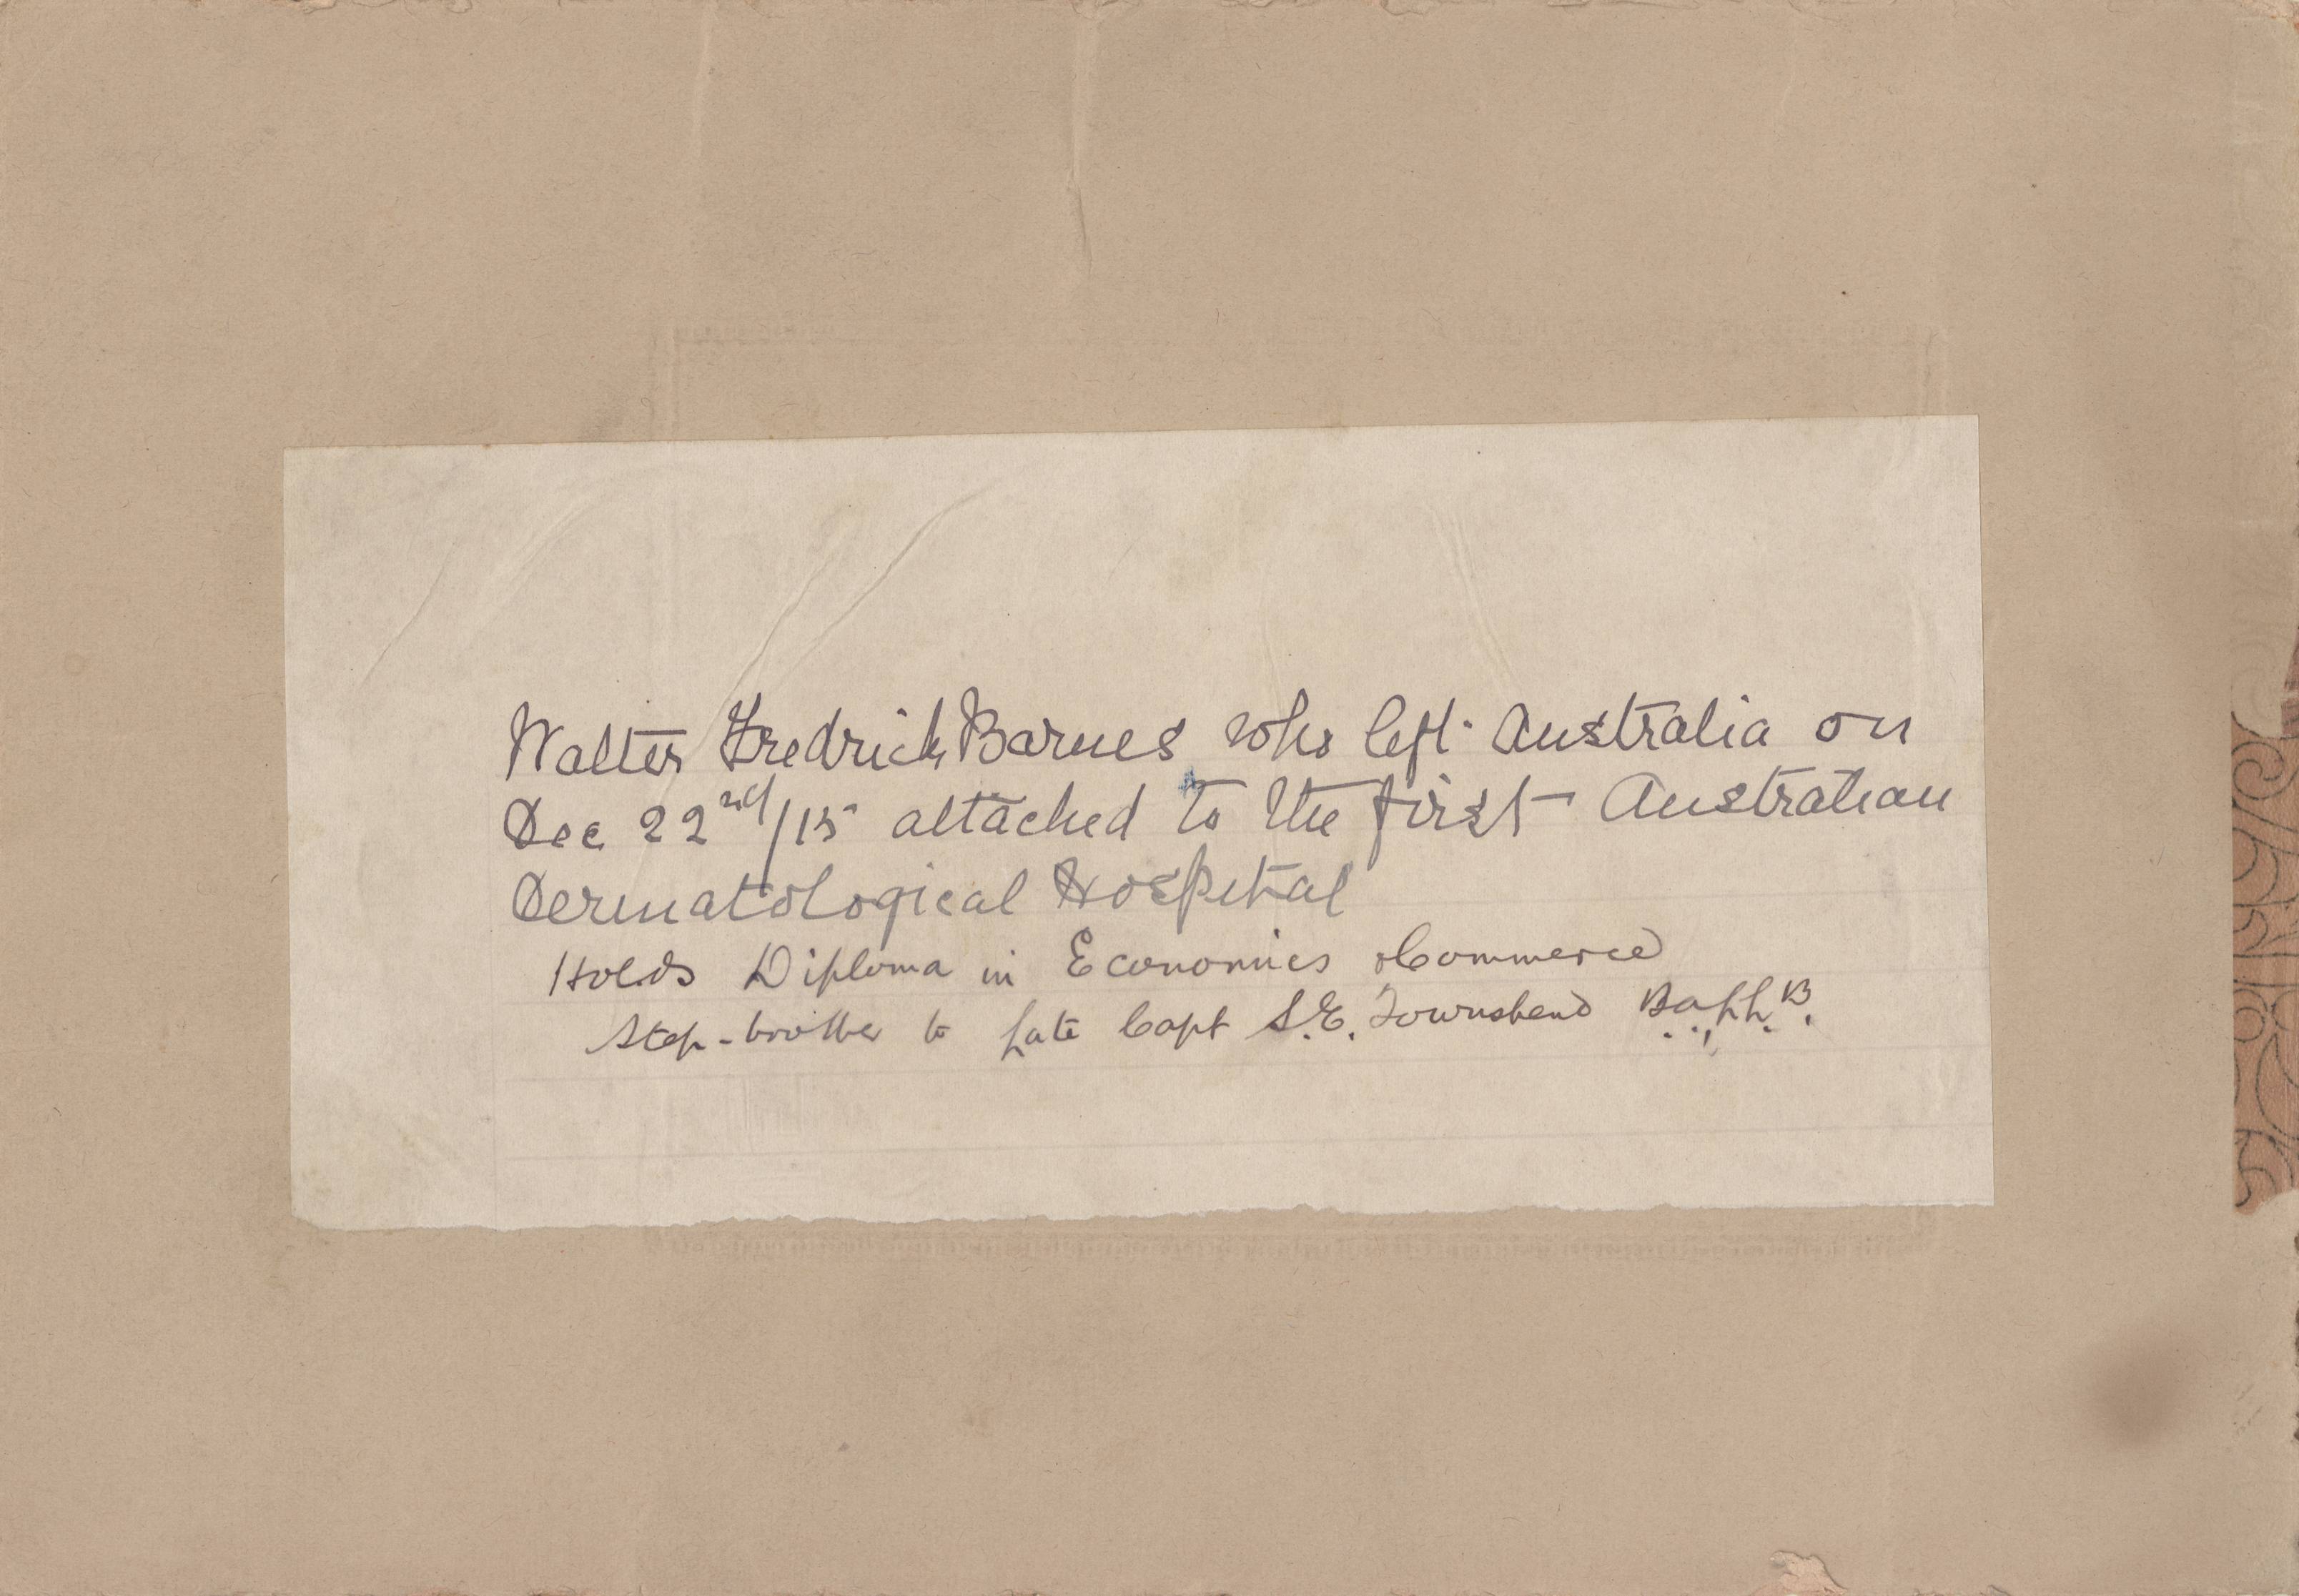 Walter Fredrick Barnes who left Australia on
Dec 22nd/15 attached to the first Australian
Dermatological Hospital
Holds Diploma in Economics & Commerce
Step-brother to Late Capt S.E. Townshend B.A., LL.B.